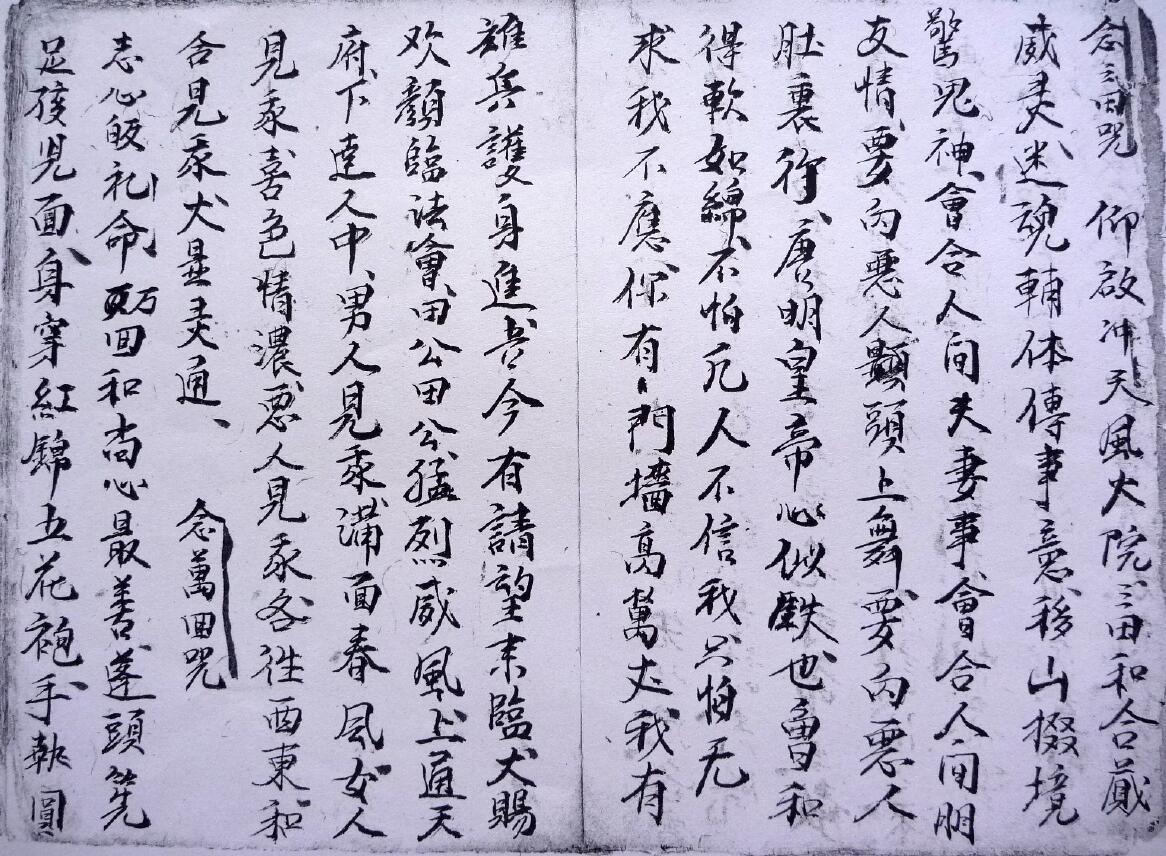 念三田咒 仰啟冲天風火院三田和合藏
威灵迷魂輔体傳事意移山掇境
驚鬼神會合人間夫妻事會合人間朋
友情要向惡人顛頭上舞要向惡人
肚裏行唐明皇帝心似鉄也曾和
得軟如綿不怕凡人不信我只怕无
求我不應你有門墻高萬丈我有
雄兵護身進吾今有請望来臨大賜
欢顏臨法會田公田公猛烈威風上通天
府下達人中男人見汞满面春風女人
見汞喜色情濃惡人見汞各往西東和
合見汞大显灵通
念萬回咒
志心皈礼命 回和尚心最善蓬頭筅
足孩児面身穿紅錦五花袍手執圓